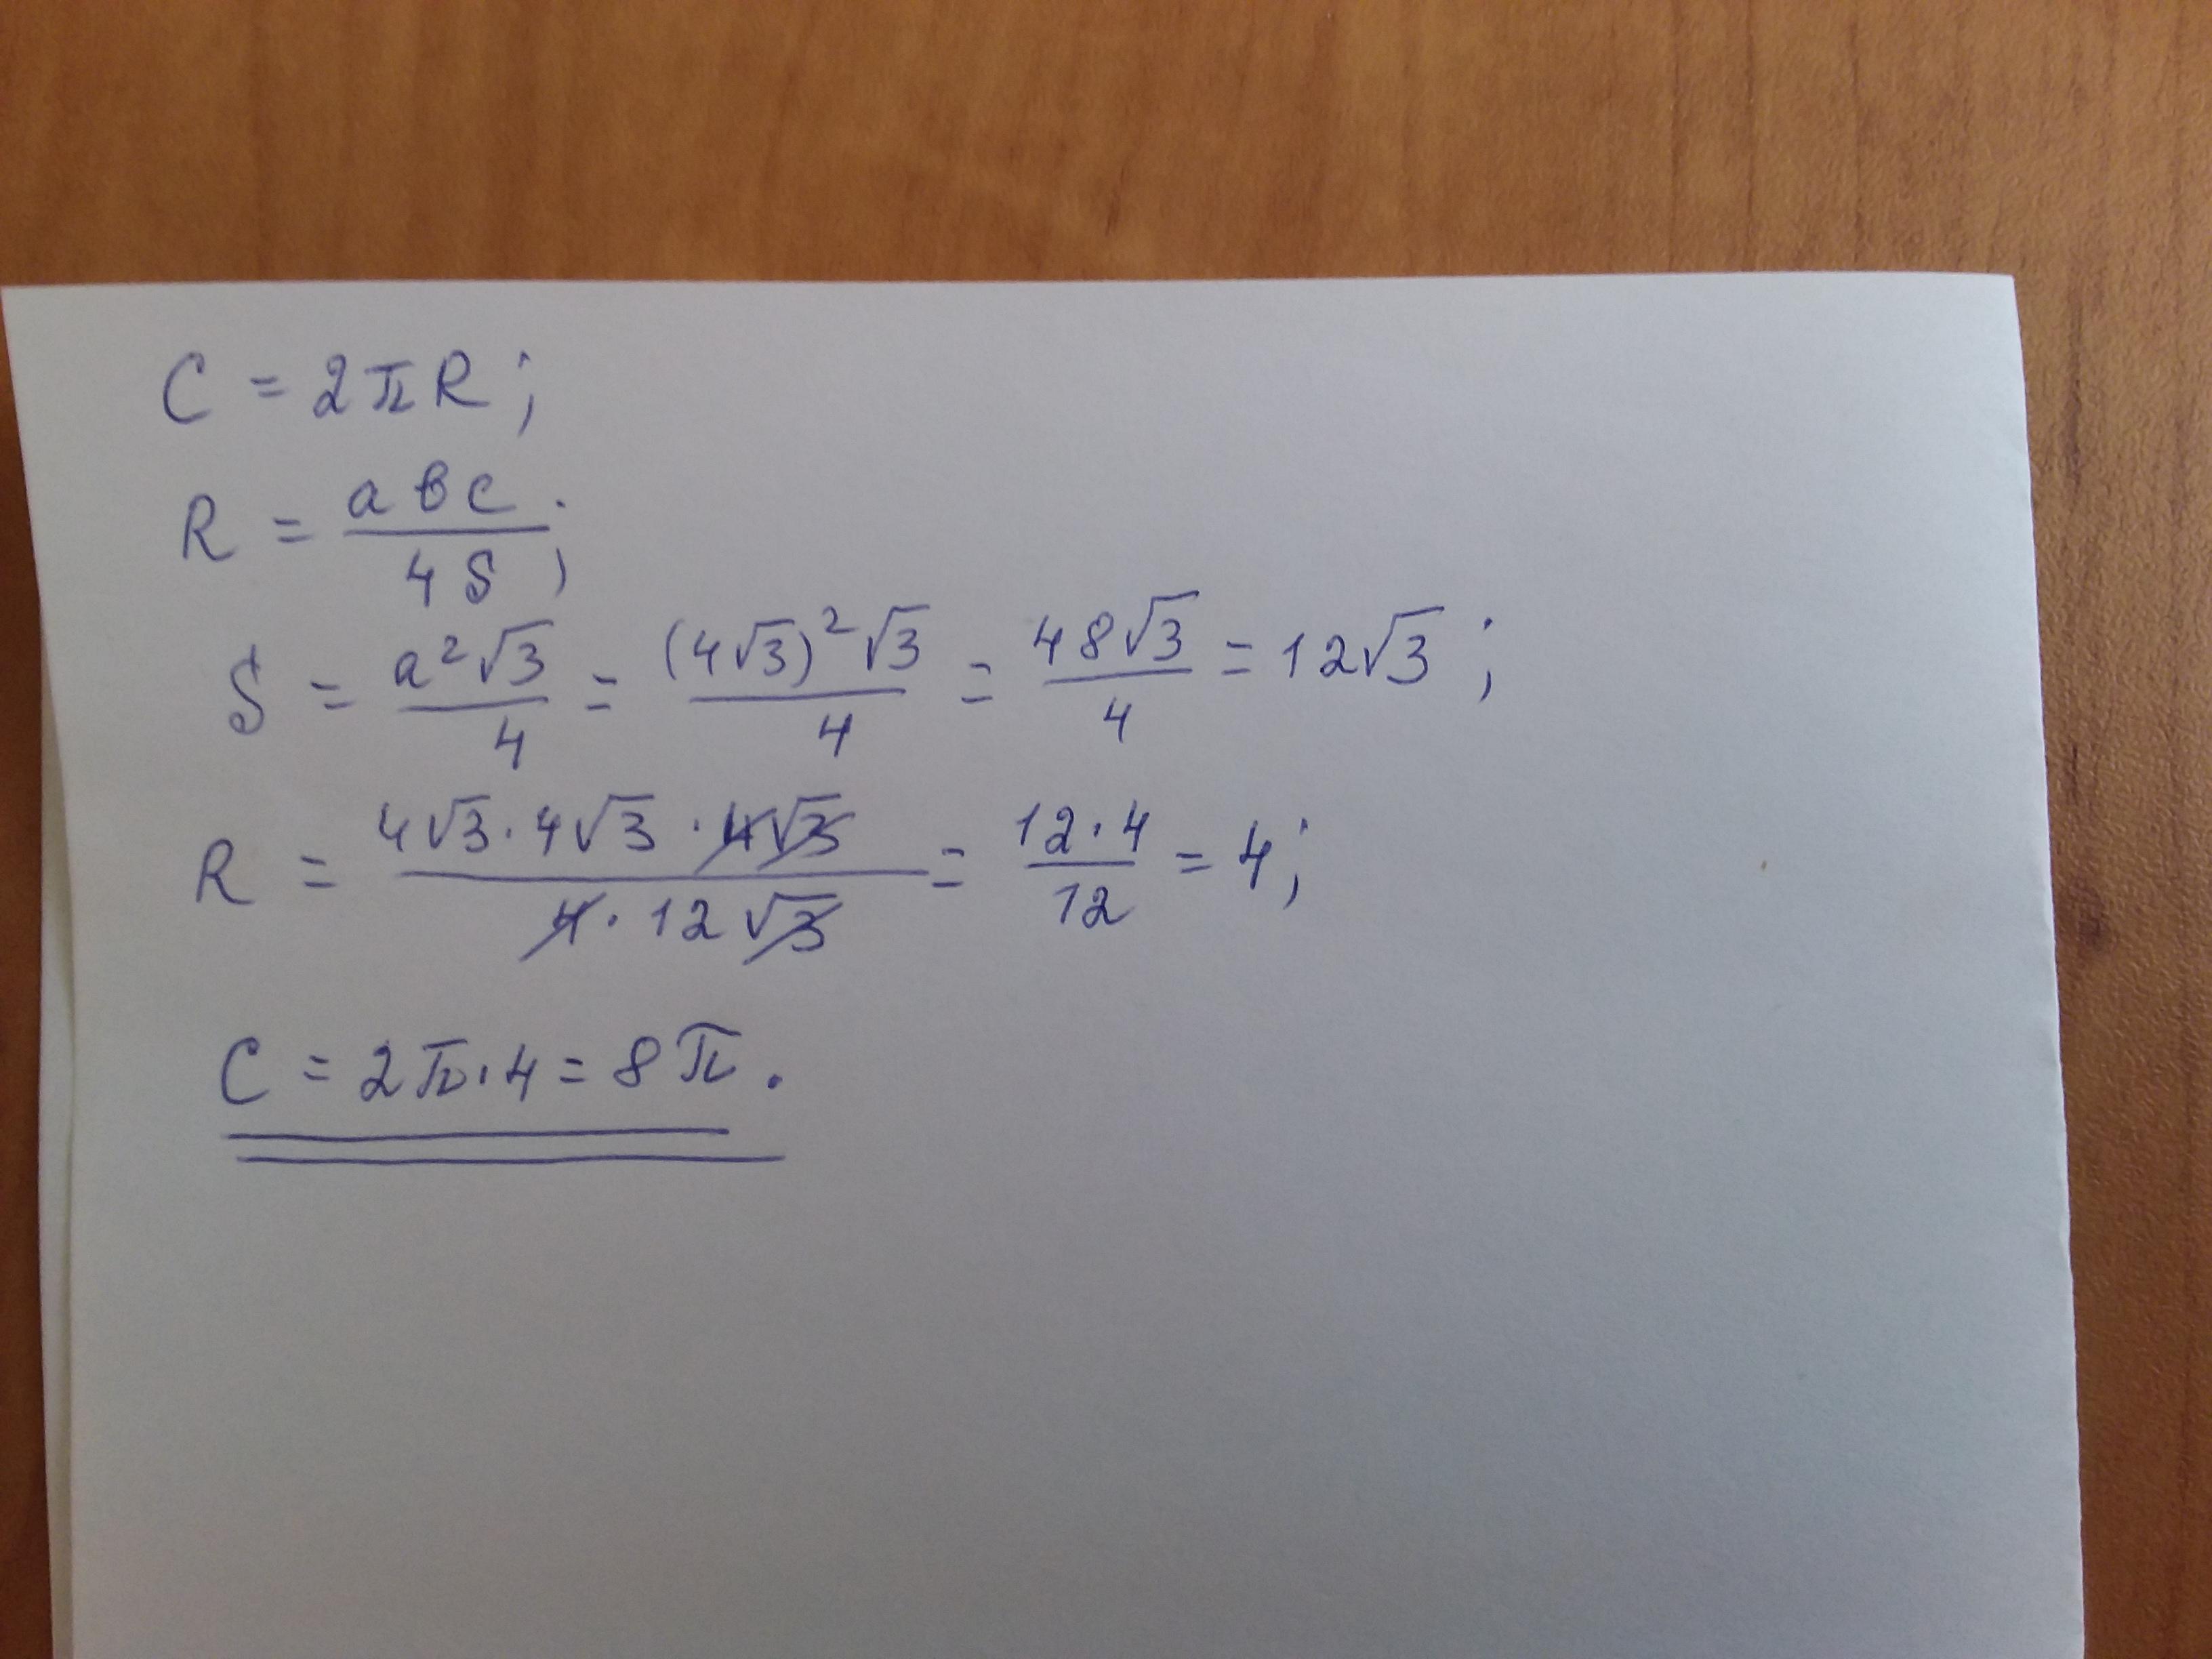 C = 2πR;
R = abc / 4S;
S = a²√3 / 4 = (4√3)²√3 / 4 = 48√3 / 4 = 12√3;
R = 4√3 · 4√3 · 4√3 / 4 · 12√3 = 12 · 4 / 12 = 4;
C = 2π · 4 = 8π.